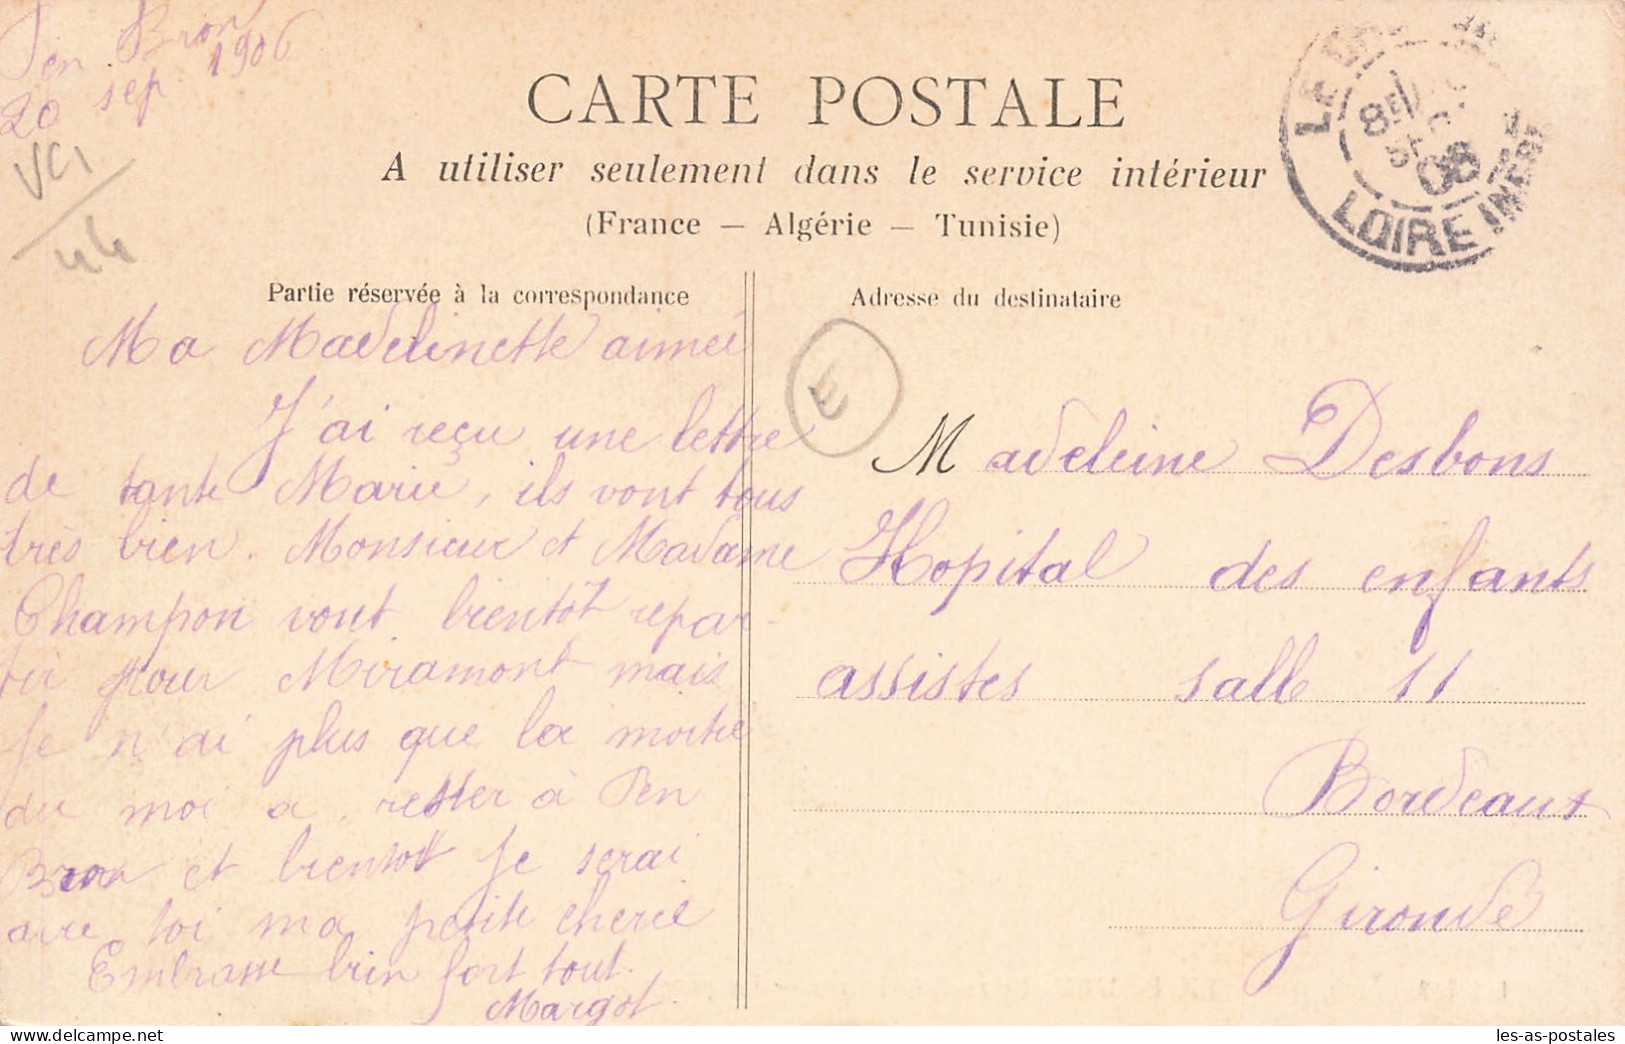 Pen Bron
20 sep. 1906
VCI
44
CARTE POSTALE
A utiliser seulement dans le service intérieur
(France — Algérie — Tunisie)
LOIRE INFRE
8E
06
Partie réservée à la correspondance
Ma Madelinette aimée
J'ai reçu une lettre
de tante Marie, ils vont tous
très bien. Monsieur et Madame
Champon vont bientôt repar-
tir pour Miramont mais
je n'ai plus que la moitié
du moi a rester à Pen
Bron et bientot je serai
avec toi ma petite cherie
Embrasse bien fort tout.
Margot.
Adresse du destinataire
E
Madeleine Desbons
Hopital des enfants
assistes salle 11
Bordeaux
Gironde
les-as-postales